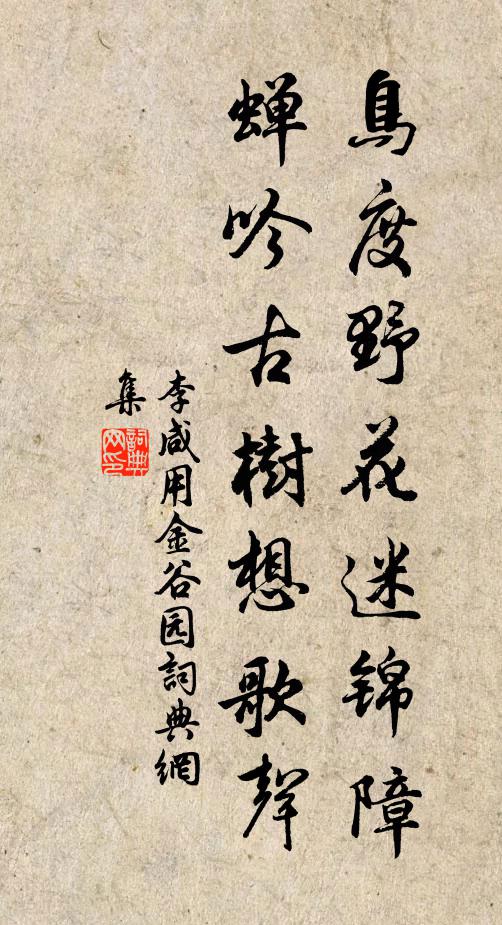 鳥度野花迷锦障
蝉吟古樹想歌聲
李咸用金谷园詞典網
集
詞典网印